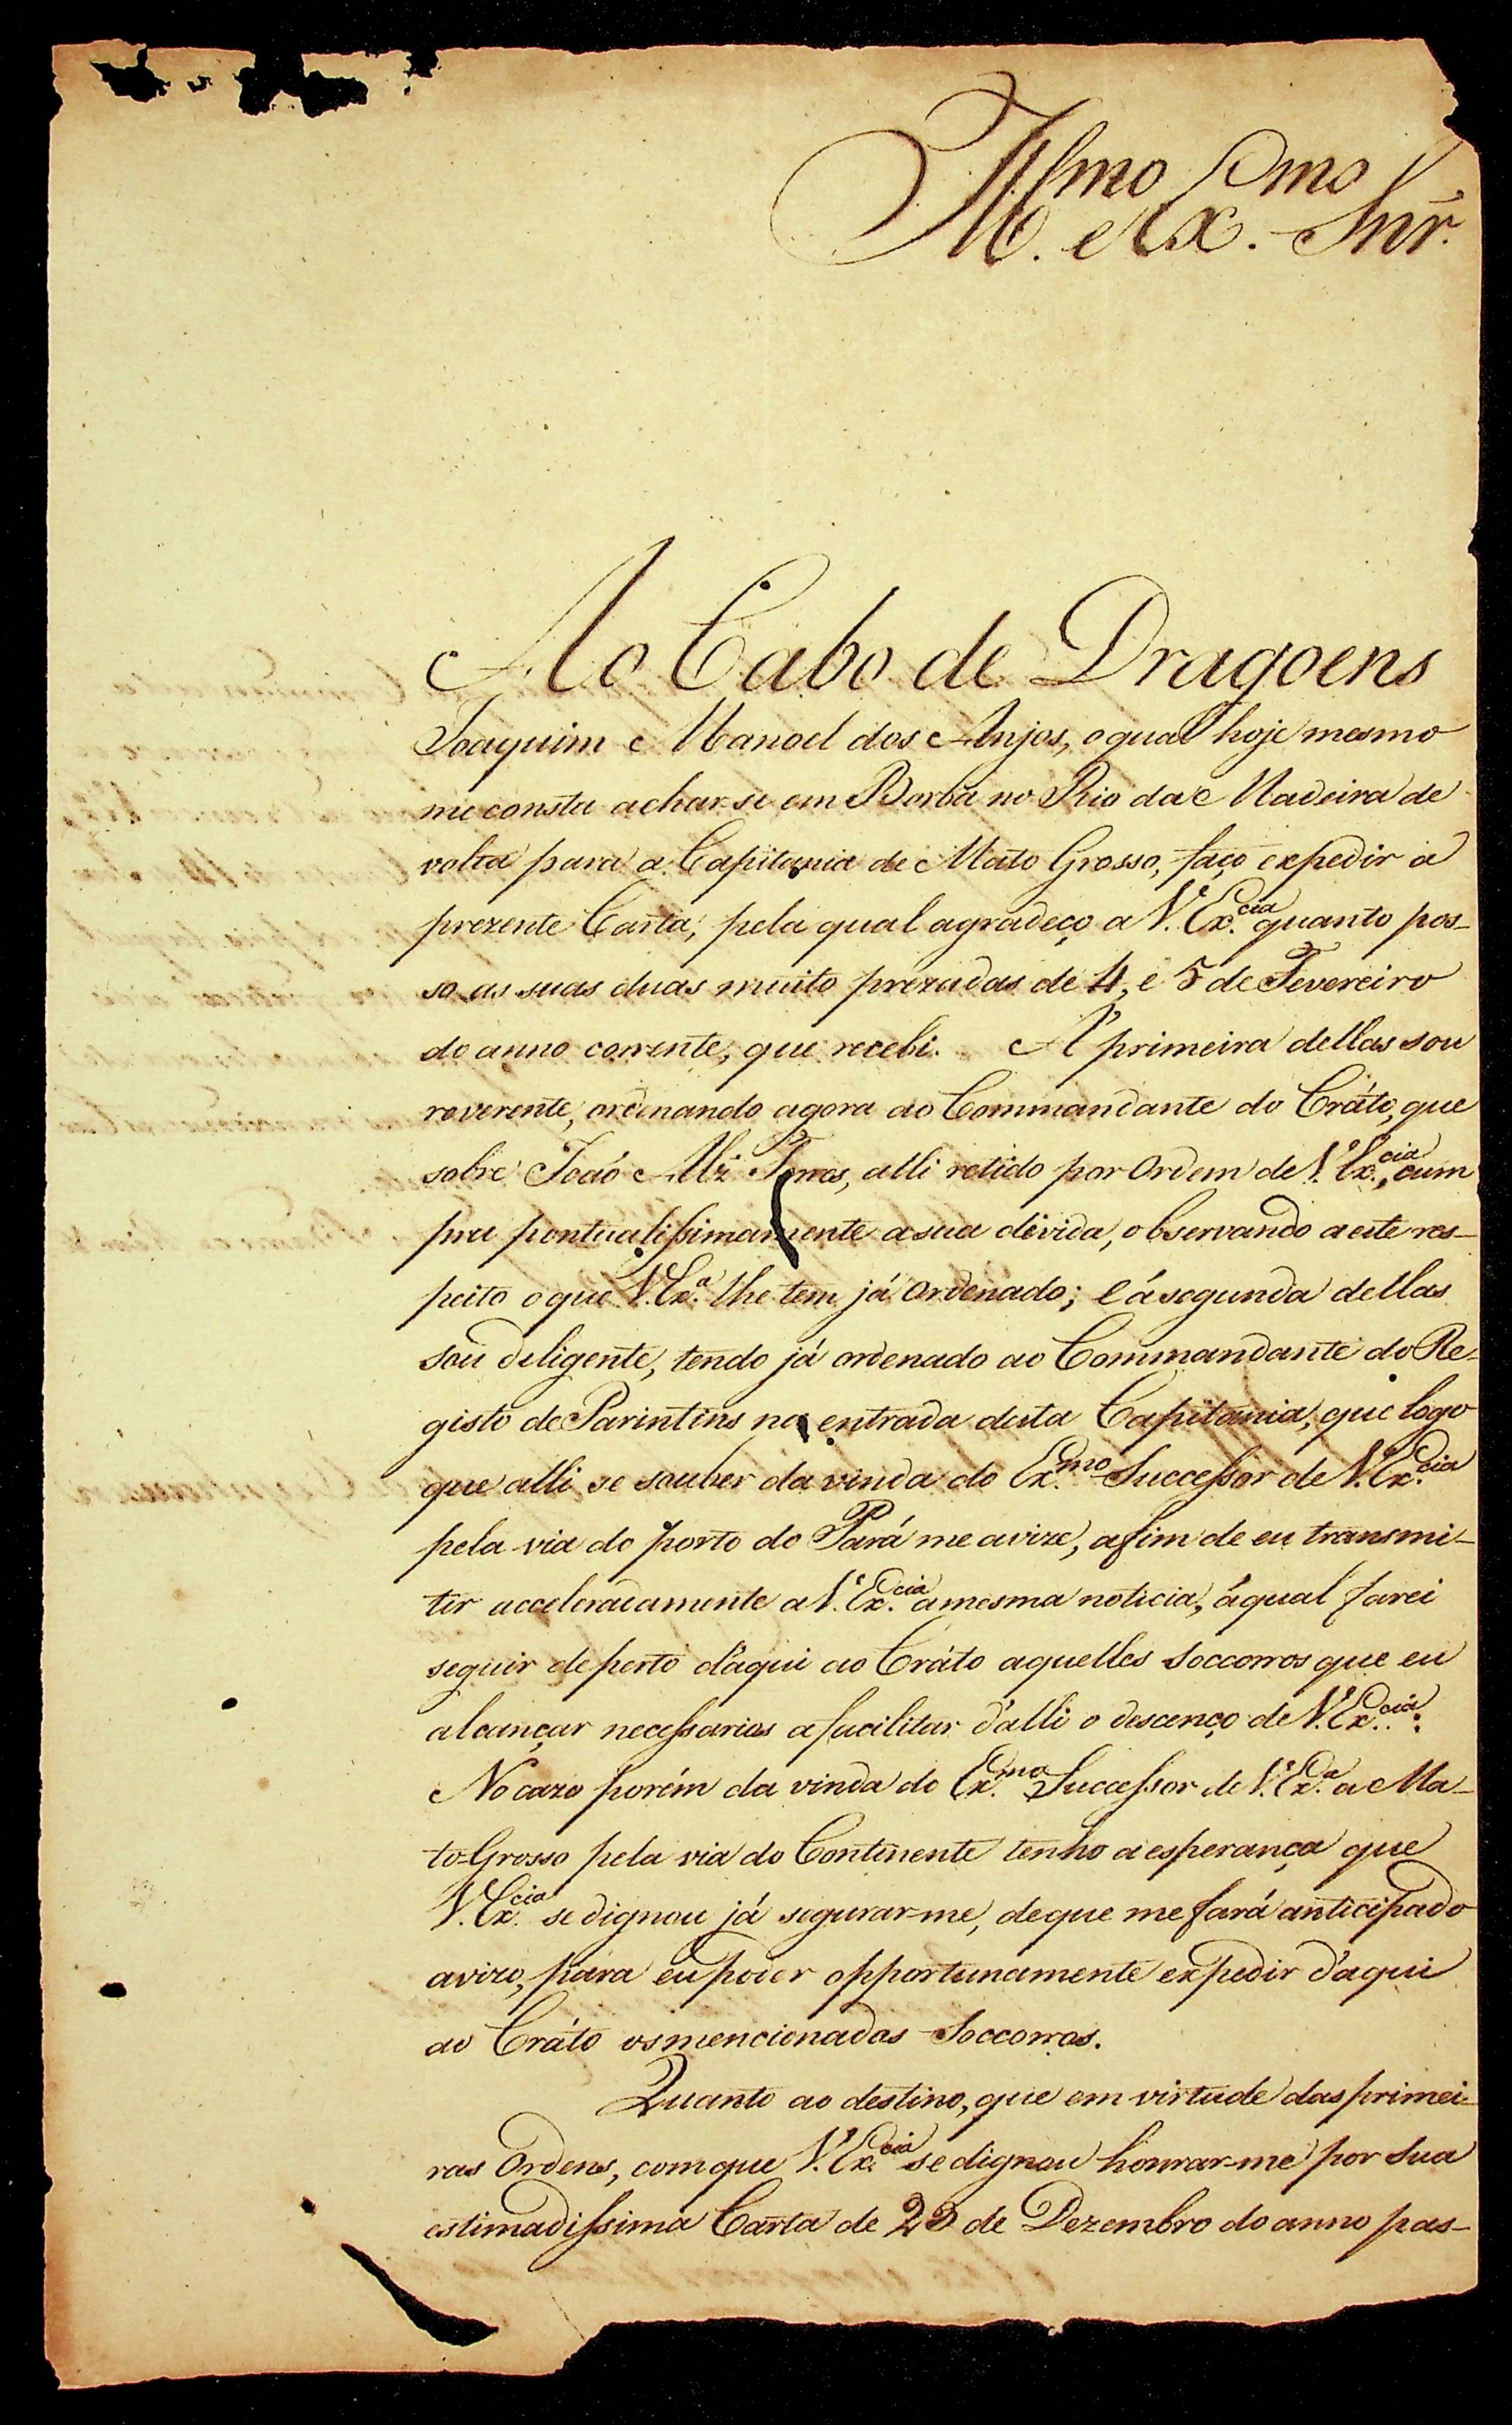 Illmo. e Exmo. Snr̃.
Ao Cabo de Dragoens
Joaquim Manoel dos Anjos, o qual hoje mesmo
me consta achar-se em Borba no Rio da Madeira de
volta para a Capitania de Mato Grosso, faço expedir a
prezente Carta, pela qual agradeço a V. Ex.cia quanto pos-
so as suas duas muito prezadas de 4, e 5 de Fevereiro
do anno corrente, que recebi. A' primeira dellas sou
reverente, ordenando agora ao Commandante do Cráto, que
sobre João Alz' Torres, alli retido por Ordem de V. Ex.cia, cum
pra pontualissimamente a sua divida, observando a este res-
peito o que V. Ex.a lhe tem já Ordenado; e á segunda dellas
sou deligente, tendo já ordenado ao Commandante do Re-
gisto de Parintins na entrada desta Capitania, que logo
que alli se souber da vinda do Ex.mo Successor de V. Ex.cia
pela via do porto do Pará me avize, a fim de eu transmi-
tir acceleradamente a V. Ex.cia a mesma noticia, á qual farei
seguir de perto d'aqui ao Cráto aquelles Soccorros que eu
alcançar necessarios a facilitar d'alli o descenço de V. Ex.cia:
No cazo porém da vinda do Ex.mo Successor de V. Ex.a a Ma-
to-Grosso pela via do Continente tenho a esperança que
V. Ex.cia se dignou já segurar-me, de que me fará anticipado
avizo, para eu poder opportunamente expedir d'aqui
ao Cráto os mencionados Soccorros.
Quanto ao destino, que em virtude das primei-
ras Ordens, com que V. Ex.cia se dignou honrar-me por Sua
estimadissima Carta de de Dezembro do anno pas-